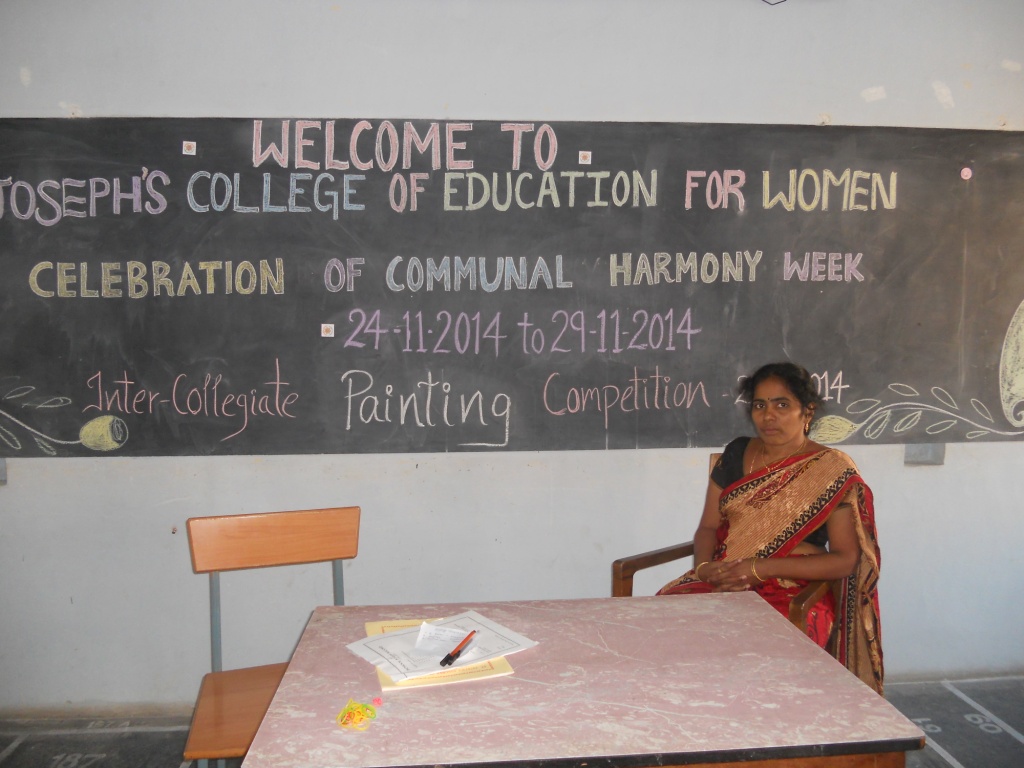 WELCOME TO
JOSEPH'S COLLEGE OF EDUCATION FOR WOMEN
CELEBRATION OF COMMUNAL HARMONY WEEK
24-11-2014 to 29-11-2014
Inter-Collegiate Painting Competition -